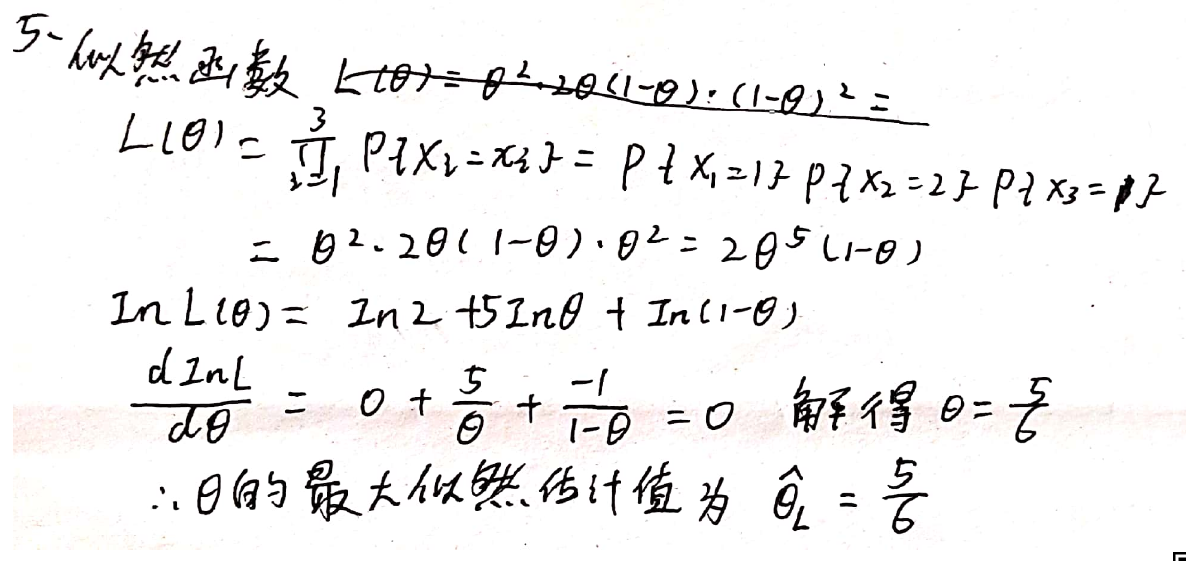 5. 似然函数 L(θ)=θ²·2θ(1-θ)·(1-θ)²=
L(θ)=∏_{i=1}^{3} P{X_i=x_i}=P{X₁=1}P{X₂=2}P{X₃=1}
=θ²·2θ(1-θ)·θ²=2θ⁵(1-θ)
In L(θ)= In2+5Inθ+In(1-θ)
dInL/dθ = 0+5/θ+-1/1-θ=0 解得 θ=5/6
∴θ的最大似然估计值为 θ̂_L=5/6